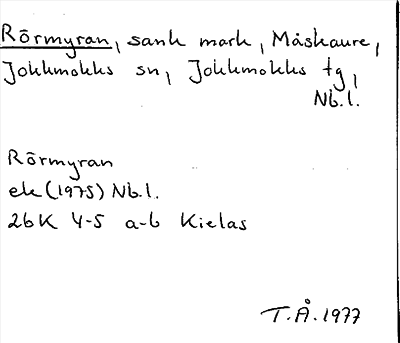 Rörmyran, sank mark, Måskaure,
Jokkmokks sn, Jokkmokks tg,
Nb.l.
Rörmyran
ek (1975) Nb.l.
26K 4-5 a-b Kielas
T.Å. 1977